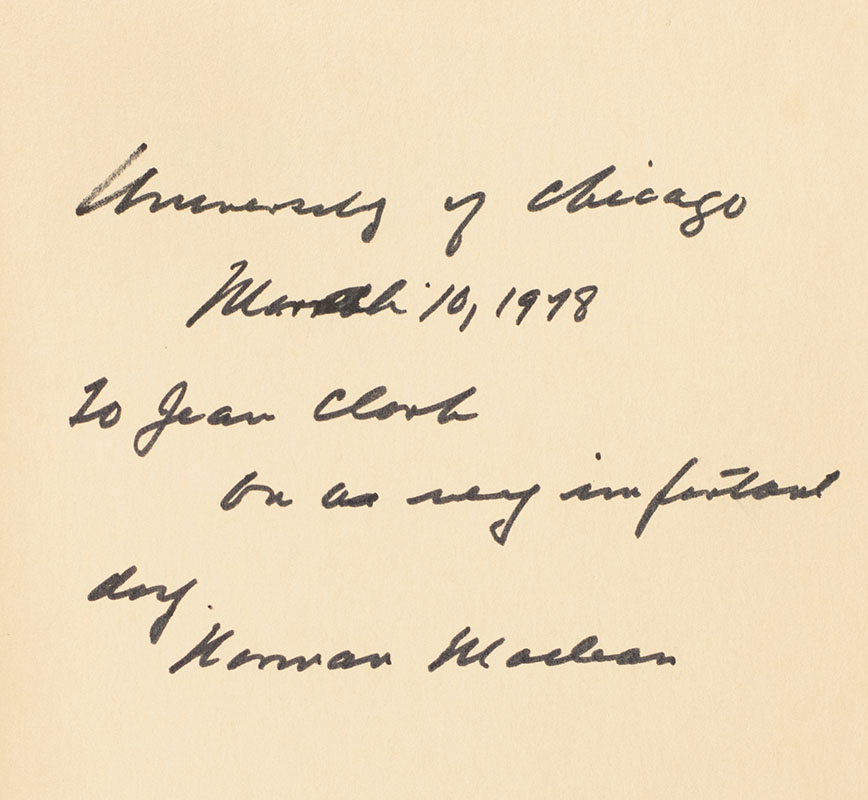 University of Chicago
March 10, 1978
To Jean Clark
On a very important
day.
Norman Maclean